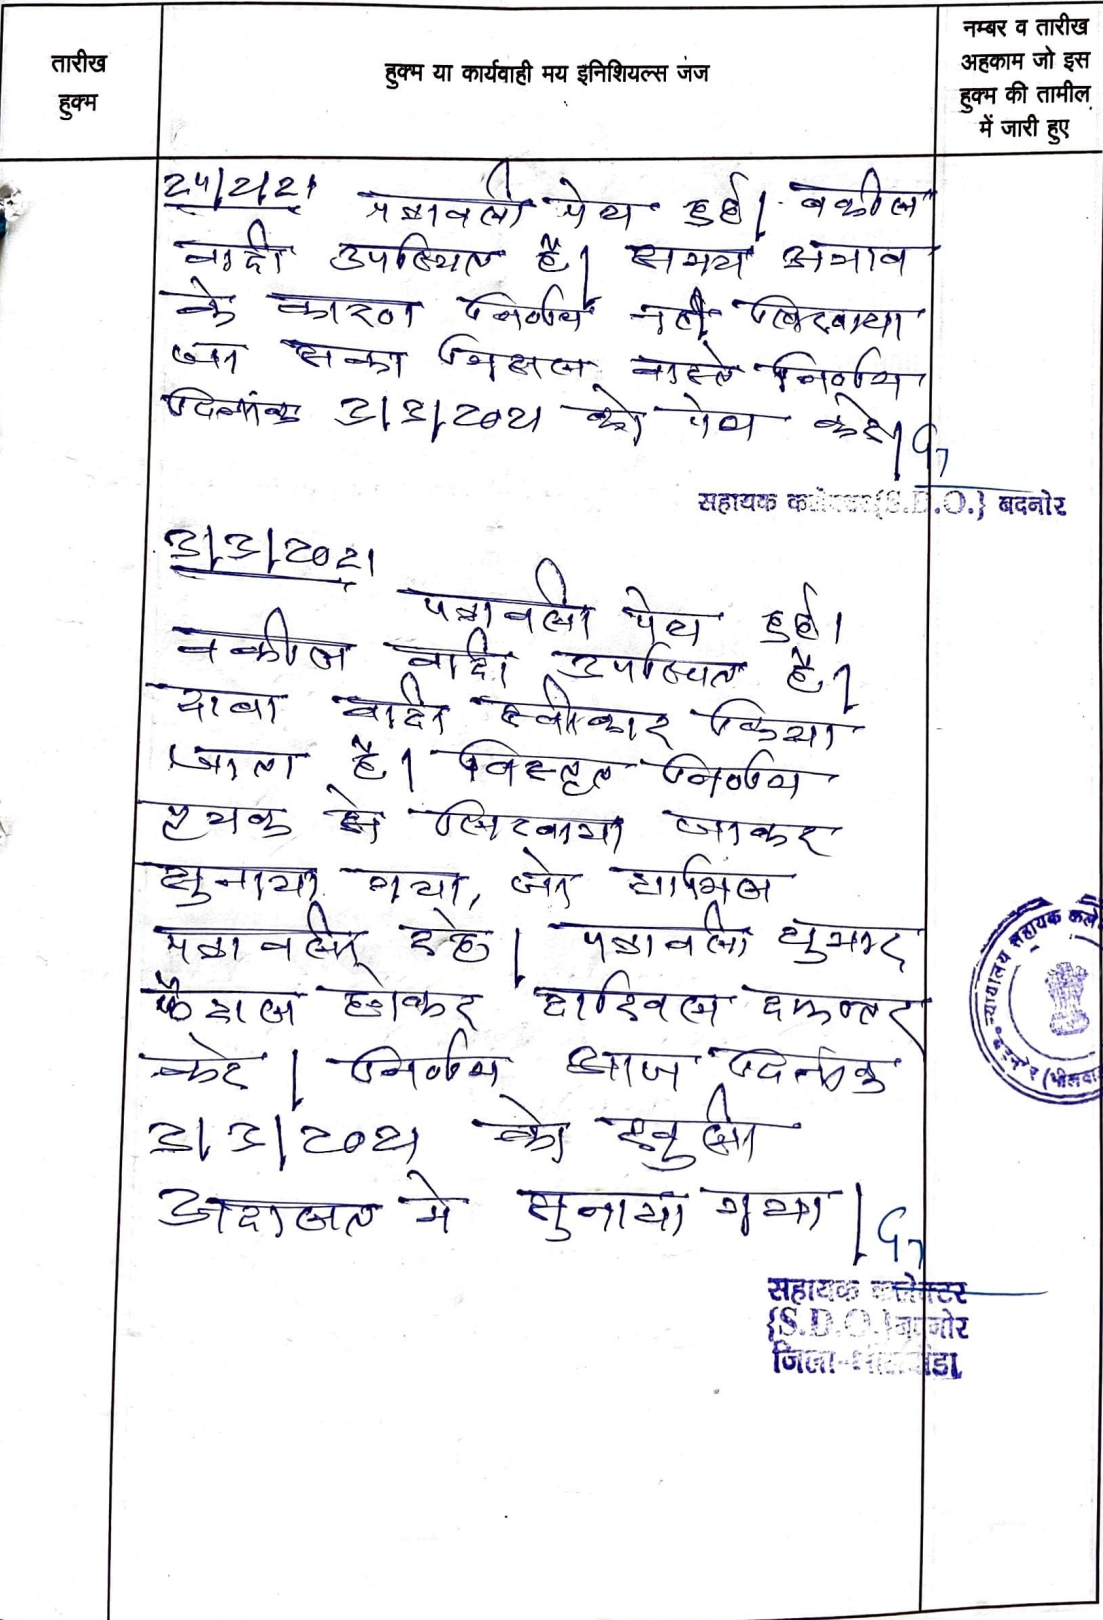 तारीख
हुक्म
हुक्म या कार्यवाही मय इनिशियल्स जंज
नम्बर व तारीख
अहकाम जो इस
हुक्म की तामील
में जारी हुए
24/2/21 पत्रावली पेश हुई। वकील
वादी उपस्थित है। समय अभाव
के कारण निर्णय नही लिखाया
जा सका मिसल वास्ते निर्णय
दिनांक 3/3/2021 को पेश करे।
सहायक कलेक्टर{S.D.O.} बदनोर
3/3/2021
पत्रावली पेश हुई।
वकील वादी उपस्थित है।
दावा वादी स्वीकार किया
जाता है। विस्तृत निर्णय
पृथक से लिखाया जाकर
सुनाया गया, जो शामिल
पत्रावली रहे। पत्रावली शुमार
फैशल होकर दाखिल दफ्तर
करे। निर्णय आज दिनांक
3/3/2021 को खुली
अदालत मे सुनाया गया।
सहायक कलेक्टर
{S.D.O.}बदनोर
जिला-भीलवाडा
न्यायालय सहायक कले
बदनोर (भीलवा